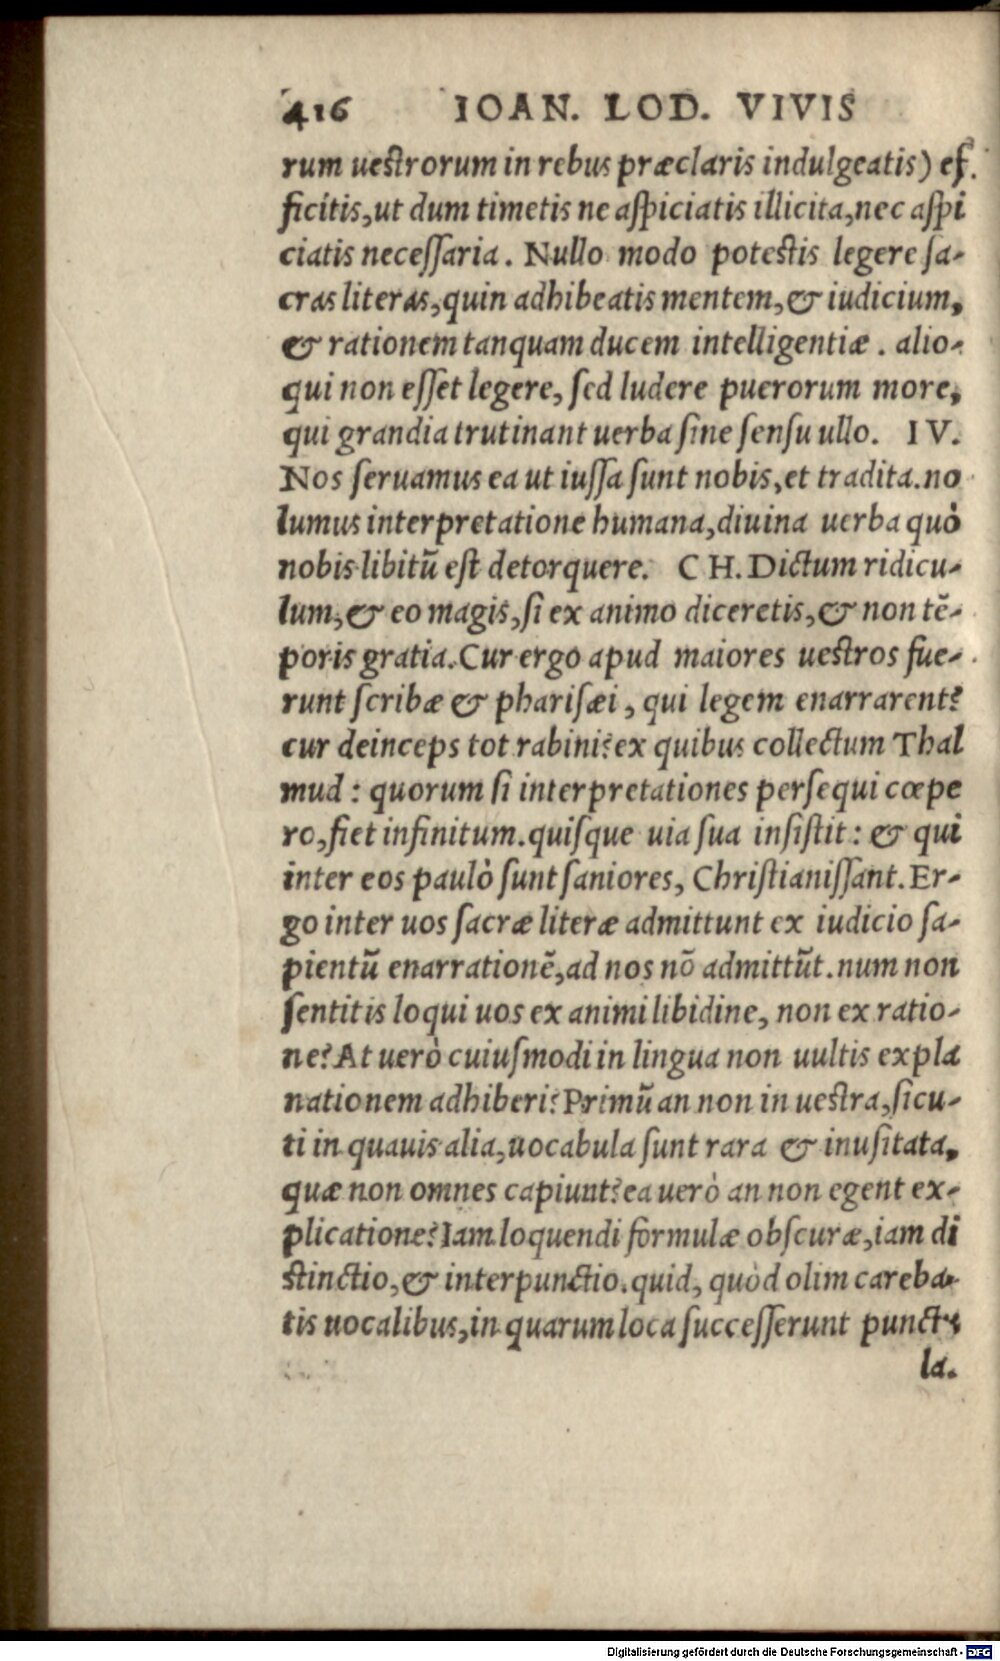 416 IOAN. LOD. VIVIS
rum ueſtrorum in rebus præclaris indulgeatis) ef.
ficitis, ut dum timetis ne aſpiciatis illicita, nec aſpi
ciatis neceſſaria. Nullo modo poteſtis legere ſa-
cras literas, quin adhibeatis mentem, & iudicium,
& rationem tanquam ducem intelligentiæ. alio-
qui non eſſet legere, ſed ludere puerorum more,
qui grandia trutinant uerba ſine ſenſu ullo. IV.
Nos ſeruamus ea ut iuſſa ſunt nobis, et tradita. no
lumus interpretatione humana, diuina uerba quò
nobis libitũ eſt detorquere. CH. Dictum ridicu-
lum, & eo magis, ſi ex animo diceretis, & non tẽ-
poris gratia. Cur ergo apud maiores ueſtros fue-
runt ſcribæ & phariſæi, qui legem enarrarent?
cur deinceps tot rabini? ex quibus collectum Thal
mud: quorum ſi interpretationes perſequi cœpe
ro, fiet infinitum. quiſque uia ſua inſiſtit: & qui
inter eos paulò ſunt ſaniores, Chriſtianiſſant. Er-
go inter uos ſacræ literæ admittunt ex iudicio ſa-
pientũ enarrationẽ, ad nos nõ admittũt. num non
ſentitis loqui uos ex animi libidine, non ex ratio-
ne? At uerò cuiuſmodi in lingua non uultis expla
nationem adhiberi? Primũ an non in ueſtra, ſicu-
ti in quauis alia, uocabula ſunt rara & inuſitata,
quæ non omnes capiunt? ea uerò an non egent ex-
plicatione? Iam loquendi formulæ obſcuræ, iam di
ſtinctio, & interpunctio. quid, quòd olim careba-
tis uocalibus, in quarum loca ſucceſſerunt punctu
la.
Digitalisierung gefördert durch die Deutsche Forschungsgemeinschaft - DFG